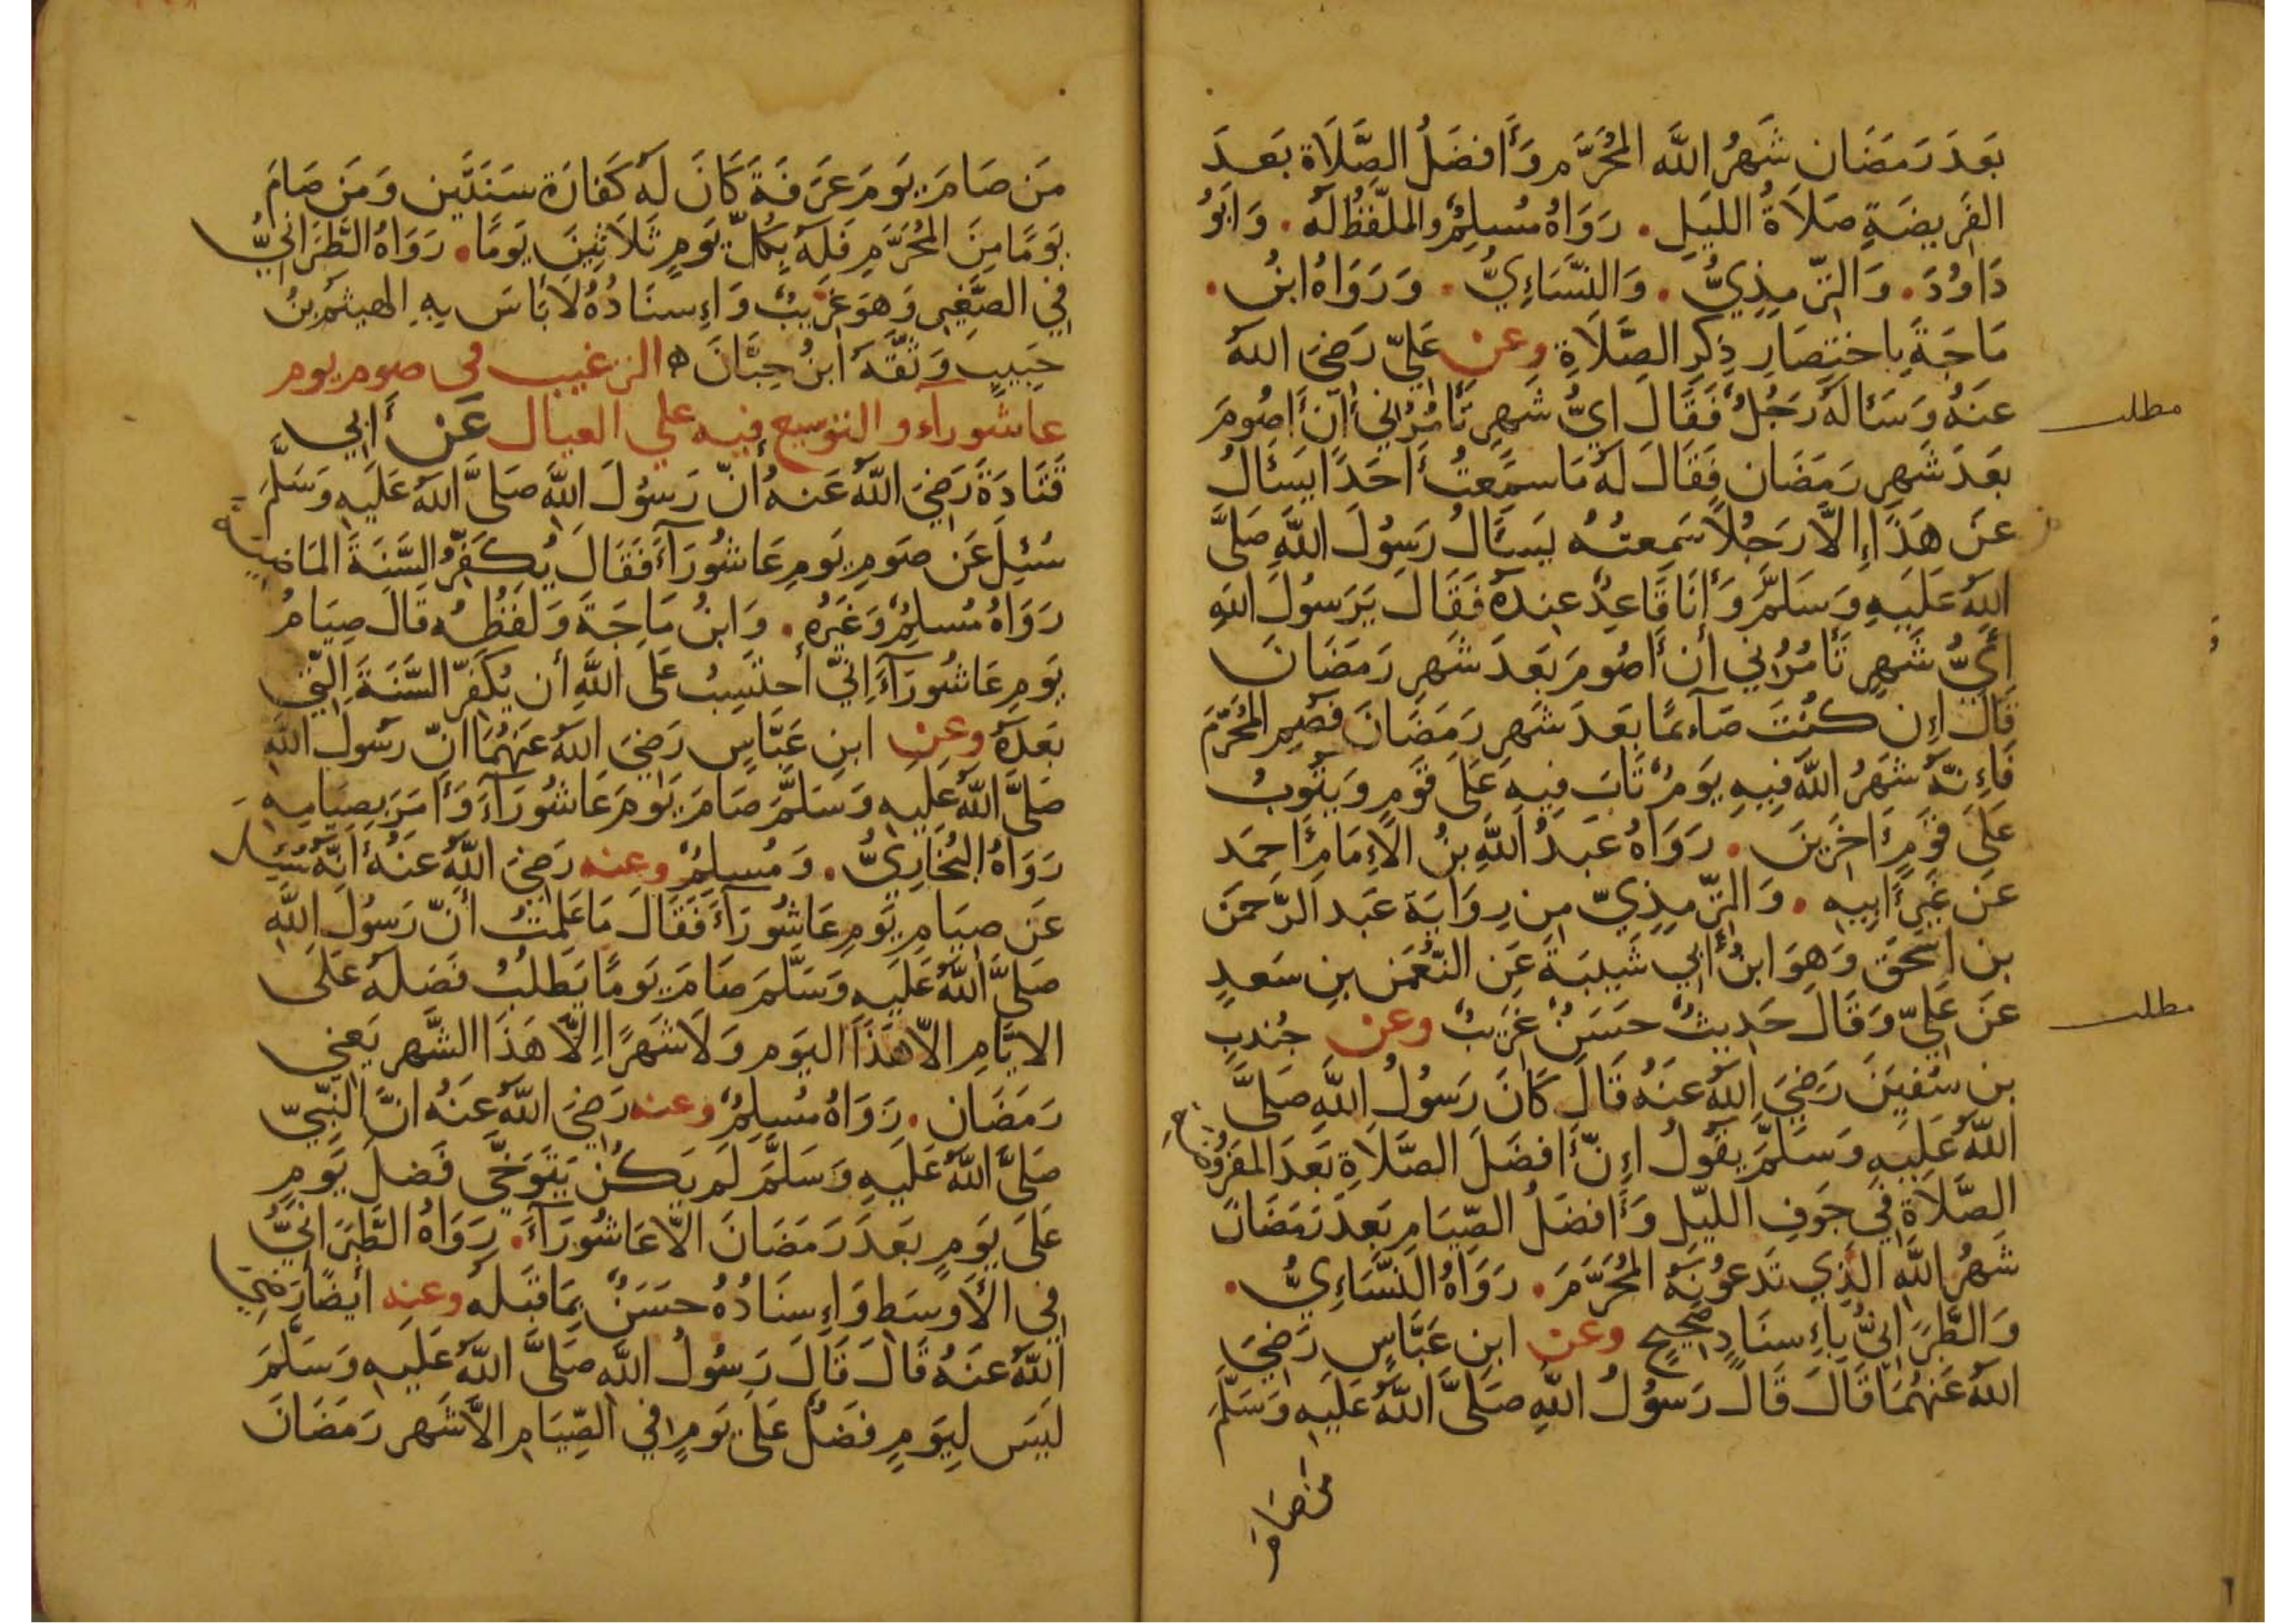 بَعدَ رَمَضَان شَهرُ اللَّه المُحَرَّم وَأَفضَلُ الصَّلَاة بَعدَ
الفَرِيضَةِ صَلَاةُ الليَلِ. رَوَاهُ مُسلِمٌ والملَّفظُ لَهُ. وَابَوُ
دَاوُدَ. وَالتِّرمِذِيُّ. وَالنَّسَاءِيُّ. وَرَوَاهُ ابنُ.
مَاجَةَ بِاختِصَارِ ذِكرِ الصَّلَاةِ وعن عَلِيّ رَضىَ اللهُ
مطلب
عَنهُ وَسَأَلهُ رَجُلٌ فَقَالَ ايُّ شَهرٍ تَأمُرُنيِ أَنّ أَصُومَ
بَعدَ شَهرِ رَمَضَان فَقَالَ لهُ مَا سَمِعتُ أَحَدًا يَسئَالُ
عَن هَذَا إِلاَّ رَجُلاً سَمِعتُهُ يَسئَالُ رَسُولَ اللَّهِ صَلىَّ
اللهُ عَلَيهِ وَسَلَّمَ وَأنَا قَاعِدٌ عِندَهُ فَقَالَ يَرَسُولَ اللهِ
أَيُّ شَهرٍ تَأمُرُنيِ أن أَصُومَ بَعدَ شَهرِ رَمَضَانَ
قَالَ اِن كُنتَ صَآءمًا بَعدَ شَهرِ رَمَضَانَ فَصُمِ المُحَرَّمَ
فَاءِنَّهُ شَهرُ اللَّه فِيهِ يَومٌ تَابَ فِيهِ عَلىَ قَومٍ وَيَتُوبُ
عَلىَ قَومٍ أَخَرِينَ. رَوَاهُ عَبدُ اللَّهِ بنُ الاءِمَامِ أَحمَد
عَن غَيرِ أَبِيهِ. وَالتِّرمِذِيّ مِن رِوَايَة عَبد الرَّحمَن
بن اسحَق وَهوَ ابنُ أَبي شَيبَةَ عَن النّعُمَن بنِ سَعدٍ
مطلب
عَن عَلِيّ وَقَالَ حَدِيثٌ حَسَنٌ غَرِيبٌ وعن جُندبِ
بن سُفيَنَ رَضِيَ اللهُ عَنهُ قَالَ كَانَ رَسُولُ اللَّهِ صَلىَّ
اللهُ عَلَيهِ وَسَلَّمَ يَقوُلُ اءِنّ أَفضَلَ الصَّلاَةِ بَعدَ المَفرُوضَةِ
الصَّلاَةُ فيِ جَوفِ الليّلِ وَأَفضَلُ الصِّيَامِ بَعدَ رَمَضَانَ
شَهرُ اللَّهِ الذِي تَدعُونَهُ المُحَرَّمَ. رَوَاهُ النَّسَاءِيُّ.
وَالطَّبرَانيُّ بِاءِسنَادٍ صَحِيحٍ وعن ابنِ عَبَّاسٍ رَضىَ
اللهُ عَنهُمَا قَالَ قَالَ رَسُولُ اللَّهِ صَلىَّ اللهُ عَلَيهِ وَسَلَّمَ
مَن صَامَ
مَن صَامَ يَومَ عَرَفَةَ كَانَ لهُ كَفارَة سَنَتَين وَمَن صَامَ
يَومًا مِنَ المُحَرَّمِ فَلَهُ بِكُلِّ يَومٍ ثَلاَثِينَ يَومًا. رَوَاهُ الطَّبَرَانيُّ
فيِ الصَّغِيرِ وَهوَ غَرِيبٌ وَاءِسنَادُهُ لاَ بَأسَ بِهِ الهيثَم بنُ
حَبِيبٍ وَثَّقَهُ ابنُ حِبَّانَ ه الترغيب في صوم يوم
عاشورآء والتوسيع فيه علي العيال عَن أَبيِ
قَتَادَةَ رَضِيَ اللهُ عَنهُ أنّ رَسُولَ اللَّه صَلىَّ اللهُ عَلَيهِ وَسَلَّمَ
سُئِلَ عَن صَومِ يَومِ عَاشُورَآءَ فَقَالَ يُكَفِّرُ السَّنَةَ المَاضِيَةَ
رَوَاهُ مُسلِمٌ وَغَيرُهِ. وَابنُ مَاجَةَ وَلَفظُهُ قَالَ صِيَامُ
يَومِ عَاشُورَآءَ اِنيِّ أحتَسِبُ عَلىَ اللَّهِ أن يُكَفِّرَ السَّنَةَ التيِ
بَعدَهُ وعن ابنِ عَبَّاسٍ رَضيَ اللهُ عَنهُمَا انّ رَسُولَ اللَّهِ
صَلىَّ اللَّهُ عَلَيهِ وَسَلَّمَ صَامَ يَومَ عَاشُورَآءَ وَأَمَرَ بِصِيَامِهِ
رَوَاهُ البُخَارِيُّ. وَمُسلِمٌ وعنه رَضىَ اللَّهُ عَنهُ أَنّهُ سُئِلَ
عَن صِيَامِ يَومِ عَاشُورَآءَ فَقَالَ مَا عَلِمتُ أنّ رَسُولَ اللَّهِ
صَلىَّ اللَّهُ عَلَيهِ وَسَلَّمَ صَامَ يَومًا يَطلُبُ فَضلهُ عَلىَ
الايَّامِ الاّ هَذَا اليَوم وَلاَ شَهرًا اِلاّ هَذَا الشَّهر يَعنيِ
رَمَضَان. رَوَاهُ مُسلِمٌ وعنه رَضيَ اللَّهُ عَنهُ انَّ النّبيّ
صَلىَّ اللَّهُ عَلَيهِ وَسَلَّمَ لَم يَكُن يَتَوَخَّي فَضلَ يَومٍ
عَلىَ يَومٍ بَعدَ رَمَضَانَ الاَّ عَاشُورَآءَ. رَوَاهُ الطَّبَرَانيُّ
فيِ الأَوسَطِ وَاءِسنَادُهُ حَسَنٌ بِمَا قَبلَهُ وعنه ايضًا رَضيَ
اللَّهُ عَنهُ قَالَ قَالَ رَسُولُ اللَّهِ صَلىَّ اللَّهُ عَلَيهِ وَسَلَّمَ
لَيسَ لِيَومٍ فَضلٌ عَلىَ يَومٍ فيِ الصِّيَامِ الاَّ شَهر رَمَضَانَ